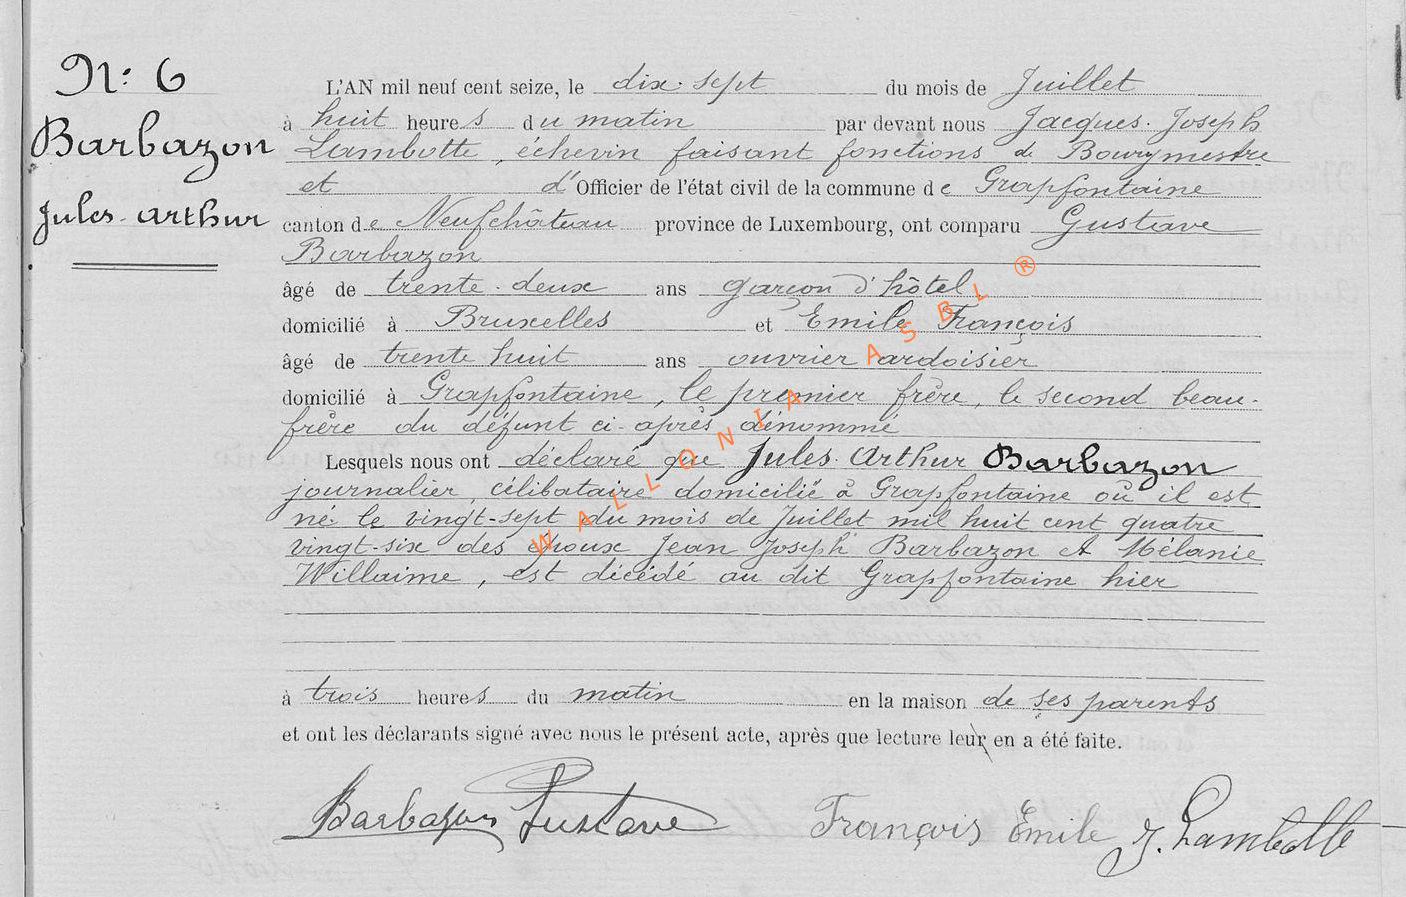 N: 6
Barbazon
Jules-Arthur
L'AN mil neuf cent seize, le dix-sept du mois de Juillet
à huit heures du matin par devant nous Jacques-Joseph
Lambotte, échevin faisant fonctions de Bourgmestre
et d'Officier de l'état civil de la commune de Grapfontaine
canton de Neufchâteau province de Luxembourg, ont comparu Gustave
Barbazon
âgé de trente-deux ans garçon d'hôtel
domicilié à Bruxelles et Emile François
âgé de trente huit ans ouvrier ardoisier
domicilié à Grapfontaine, le premier frère, le second beau-
frère du défunt ci-après dénommé
Lesquels nous ont déclaré que Jules-Arthur Barbazon
journalier, célibataire domicilié à Grapfontaine où il est
né le vingt-sept du mois de Juillet mil huit cent quatre
vingt-six des époux Jean Joseph Barbazon et Mélanie
Willaime, est décédé au dit Grapfontaine hier
à trois heures du matin en la maison de ses parents
et ont les déclarants signé avec nous le présent acte, après que lecture leur en a été faite.
Barbazon Gustave François Emile J. Lambotte
WALLONIA ASBL ®